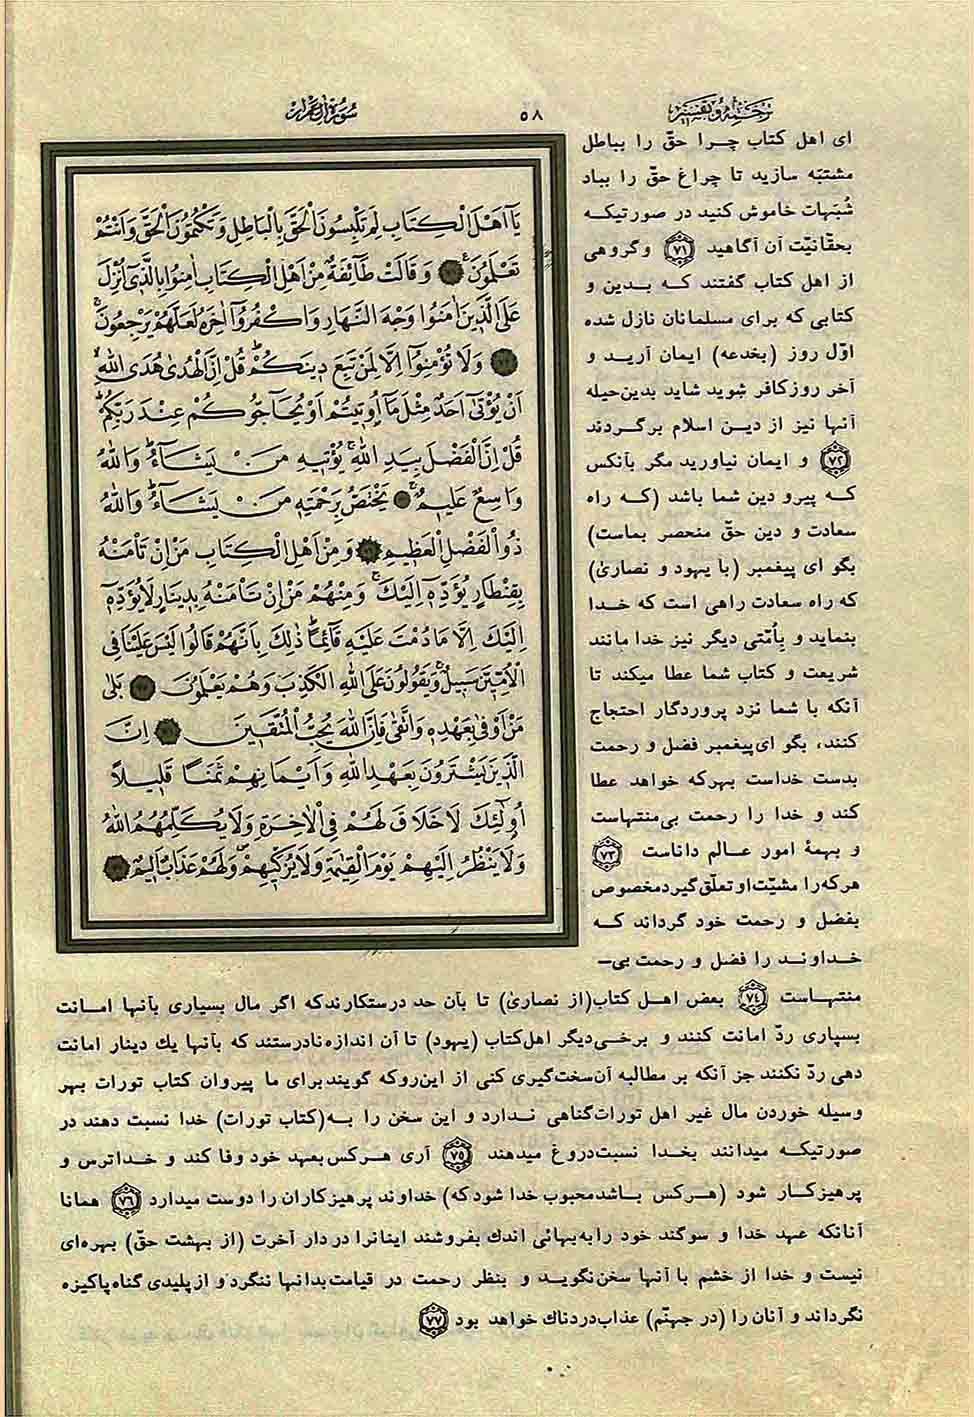 ترجمه و تفسیر
۵۸
سورة آل عمران
یَآ اَهْلَ الْكِتَابِ لِمَ تَلْبِسُونَ الْحَقَّ بِالْبَاطِلِ وَتَكْتُمُونَ الْحَقَّ وَاَنْتُمْ
تَعْلَمُونَ ۷۱ وَقَالَتْ طَآئِفَةٌ مِنْ اَهْلِ الْكِتَابِ اٰمِنُوا بِالَّذٖٓی اُنْزِلَ
عَلَی الَّذٖینَ اٰمَنُوا وَجْهَ النَّهَارِ وَاكْفُرُوٓا اٰخِرَهُ لَعَلَّهُمْ یَرْجِعُونَ
۷۲ وَلَا تُؤْمِنُوٓا اِلَّا لِمَنْ تَبِعَ دٖینَكُمْ قُلْ اِنَّ الْهُدٰی هُدَی اللّٰهِ
اَنْ یُؤْتٰٓی اَحَدٌ مِثْلَ مَآ اُوتٖیتُمْ اَوْ یُحَآجُّوكُمْ عِنْدَ رَبِّكُمْ
قُلْ اِنَّ الْفَضْلَ بِیَدِ اللّٰهِ یُؤْتٖیهِ مَنْ یَشَآءُ وَاللّٰهُ
وَاسِعٌ عَلٖیمٌ یَخْتَصُّ بِرَحْمَتِهٖ مَنْ یَشَآءُ وَاللّٰهُ
ذُو الْفَضْلِ الْعَظٖیمِ وَمِنْ اَهْلِ الْكِتَابِ مَنْ اِنْ تَاْمَنْهُ
بِقِنْطَارٍ یُؤَدِّهٖٓ اِلَیْكَ وَمِنْهُمْ مَنْ اِنْ تَاْمَنْهُ بِدٖینَارٍ لَا یُؤَدِّهٖٓ
اِلَیْكَ اِلَّا مَا دُمْتَ عَلَیْهِ قَآئِمًا ذٰلِكَ بِاَنَّهُمْ قَالُوا لَیْسَ عَلَیْنَا فِی
الْاُمِّیّٖنَ سَبٖیلٌ وَیَقُولُونَ عَلَی اللّٰهِ الْكَذِبَ وَهُمْ یَعْلَمُونَ بَلٰی
مَنْ اَوْفٰی بِعَهْدِهٖ وَاتَّقٰی فَاِنَّ اللّٰهَ یُحِبُّ الْمُتَّقٖینَ اِنَّ
الَّذٖینَ یَشْتَرُونَ بِعَهْدِ اللّٰهِ وَاَیْمَانِهِمْ ثَمَنًا قَلٖیلًا
اُولٰٓئِكَ لَا خَلَاقَ لَهُمْ فِی الْاٰخِرَةِ وَلَا یُكَلِّمُهُمُ اللّٰهُ
وَلَا یَنْظُرُ اِلَیْهِمْ یَوْمَ الْقِیٰمَةِ وَلَا یُزَكّٖیهِمْ وَلَهُمْ عَذَابٌ اَلٖیمٌ
ای اهل کتاب چرا حقّ را بباطل
مشتبّه سازید تا چراغ حقّ را بباد
شُبَهات خاموش کنید در صورتیکه
بحقّانیّت آن آگاهید ۷۱ و گروهی
از اهل کتاب گفتند که بدین و
کتابی که برای مسلمانان نازل شده
اوّل روز (بخدعه) ایمان آرید و
آخر روز کافر شوید شاید بدین‌حیله
آنها نیز از دین اسلام برگردند
۷۲ و ایمان نیاورید مگر بآنکس
که پیرو دین شما باشد (که راه
سعادت و دین حقّ منحصر بماست)
بگو ای پیغمبر (با یهود و نصاریٰ)
که راه سعادت راهی است که خدا
بنماید و بِاُمّتی دیگر نیز خدا مانند
شریعت و کتاب شما عطا میکند تا
آنکه با شما نزد پروردگار احتجاج
کنند، بگو ای‌پیغمبر فضل و رحمت
بدست خداست بهرکه خواهد عطا
کند و خدا را رحمت بی‌منتهاست
و بهمهٔ امور عالم داناست ۷۳
هرکه را مشیّت او تعلّق گیرد مخصوص
بفضل و رحمت خود گرداند که
خداوند را فضل و رحمت بی–
منتهاست ۷۴ بعض اهل کتاب(از نصاریٰ) تا بآن حد درستکارندکه اگر مال بسیاری بآنها امانت
بسپاری ردّ امانت کنند و برخی‌دیگر اهل‌کتاب (یهود) تا آن اندازه نادرستند که بآنها یك دینار امانت
دهی ردّ نکنند جز آنکه بر مطالبه آن سخت‌گیری کنی از این‌روکه گویند برای ما پیروان کتاب تورات بهر
وسیله خوردن مال غیر اهل تورات‌گناهی ندارد و این سخن را به(کتاب تورات) خدا نسبت دهند در
صورتیکه میدانند بخدا نسبت‌دروغ میدهند ۷۵ آری هرکس بعهد خود وفا کند و خداترس و
پرهیزکار شود (هرکس باشد محبوب خدا شود که) خداوند پرهیزکاران را دوست میدارد ۷۶ همانا
آنانکه عهد خدا و سوگند خود را به‌بهائی اندك بفروشند اینانرا در دار آخرت (از بهشت حقّ) بهره‌ای
نیست و خدا از خشم با آنها سخن‌نگوید و بنظر رحمت در قیامت بدانها ننگرد و از پلیدی گناه پاکیزه
نگرداند و آنان را (در جهنّم) عذاب‌دردناك خواهد بود ۷۷